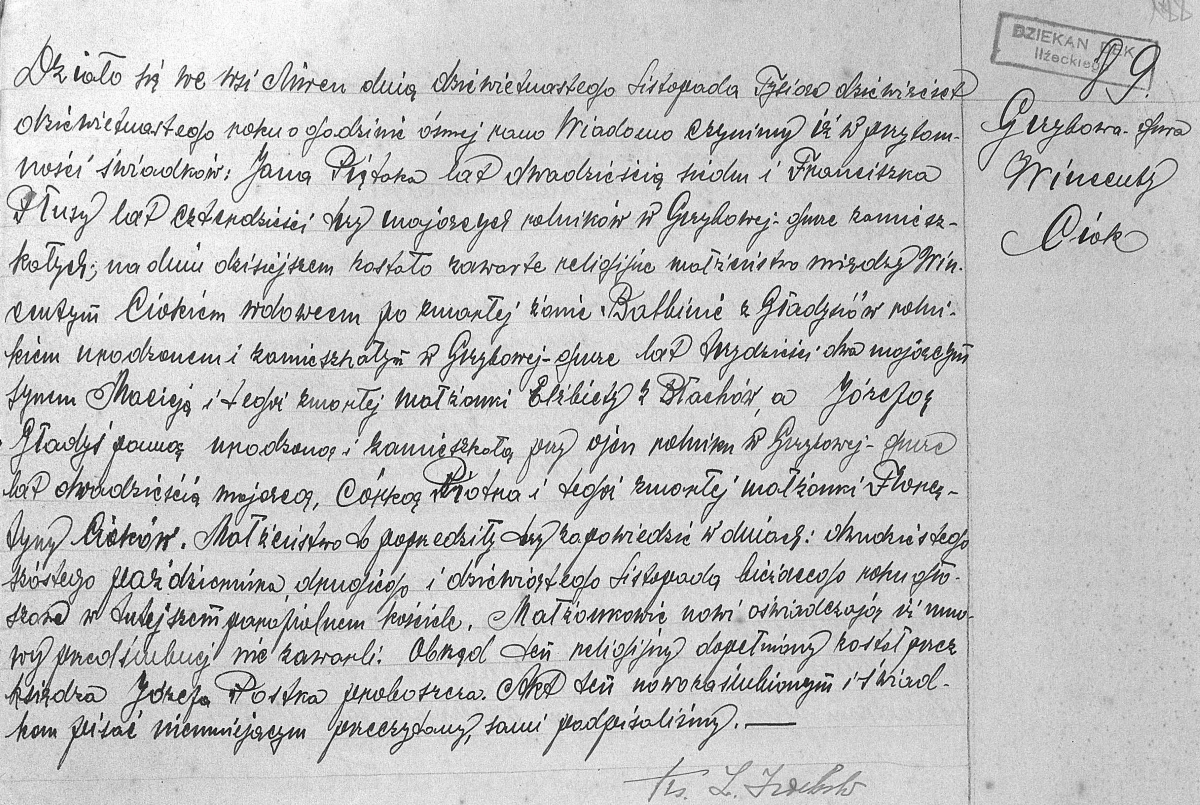 DZIEKAN DEK.
Iłżeckiego
89.
Grzybowa-Gura
Wincenty
Ciok
Działo się we wsi Mircu dnia dziewiętnastego Listopada Tysiąc dziewięćset
dziewiętnastego roku o godzinie ósmej rano Wiadomo czynimy iż w przytom-
ności świadków: Jana Piętaka lat dwadzieścia siedm i Franciszka
Płusy lat czterdzieści trzy mających rolników w Grzybowej-Gurze zamiesz-
kałych; na dniu dzisiejszem zostało zawarte religijne małżeństwo między Win-
centym Ciokiem wdowcem po zmarłej żonie Balbinie z Gładysiów rolni-
kiem urodzonem i zamieszkałym w Grzybowej-Gurze lat trzydzieści dwa mającym
synem Macieja i tegoż zmarłej małżonki Elżbiety z Błachów, a Józefą
Gładyś panną urodzoną i zamieszkałą przy ojcu rolniku w Grzybowej-Gurze
lat dwadzieścia mającą, Córką Piotra i tegoż zmarłej małżonki Floren-
tyny Cioków. Małżeństwo to poprzedziły trzy zapowiedzie w dniach: dwudziestego
szóstego października drugiego i dziewiątego Listopada bieżącego roku gło-
szone w tutejszem parafialnem kościele. Małżonkowie nowi oświadczają iż umo-
wy przedślubnej nie zawarli. Obrząd ten religijny dopełniony został przez
księdza Józefa Rostka proboszcza. Akt ten nowozaślubionym i świad-
kom pisać nieumiejącym przeczytany, sami podpisaliśmy.
Ks. L.